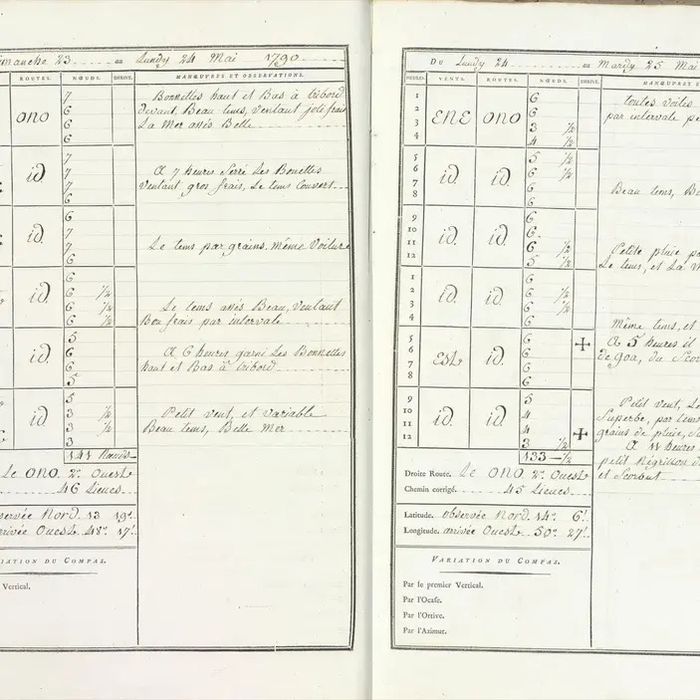 imanche 23 = Lundy 24 Mai 1790
ROUTES. NŒUDS. DÉRIVE. MANŒUVRES ET OBSERVATIONS.
ONO
7
6
6
6
Bonnettes haut et Bas à tribord
devant, Beau tems, Ventant joli frais
La Mer assés Belle
id.
7
7
7
6
A 7 heures Serré Les Bonettes
Ventant gros frais, Le tems Couvert
id.
6
7
7
6
Le tems par grains, même Voilure
id.
6
6 ½
6 ½
6
Le tems assés Beau, Ventant
Bon frais par intervale
id.
5
6
6
5
A 6 heures garni Les Bonnettes
haut et Bas à tribord
id.
5
3 ½
3 ½
3
Petit vent, et variable
Beau tems, Belle Mer
141
Le ONO 2d. Ouest
46 Lieues
servée Nord 13 19d.
rrivée Ouest 48d. 17'
IATION DU COMPAS.
Vertical.
Du Lundy 24 = Mardy 25 Mai
HEURES. VENTS. ROUTES. NŒUDS. DÉRIVE. MANŒUVRES E
1
2
3
4
ENE ONO
6
6
3 ½
4 ½
toutes voiles
par intervale pe
5
6
7
8
id. id.
5 ½
6 ½
6
6
Beau tems, Be
9
10
11
12
id. id.
6
6
6 ½
5 ½
Petite pluie pa
Le tems, et La M
1
2
3
4
id. id.
6
6 ½
6 ½
6
Même tems, et
5
6
7
8
Est id.
6
6
6
6
A 5 heures il
de goa, du Scor
9
10
11
12
id. id.
5
4
4
3 ½
Petit vent, Le
Superbe, par tems
grains de pluie,
A 11 heures
petit Négrillon d
et Scorbut
133 — ½
Droite Route. Le ONO 2d. Ouest
Chemin corrigé. 45 Lieues
Latitude. observée Nord 14d. 6'
Longitude. arrivée Ouest 50d. 27'
VARIATION DU COMPAS.
Par le premier Vertical.
Par l'Ocase.
Par l'Ortive.
Par l'Azimut.